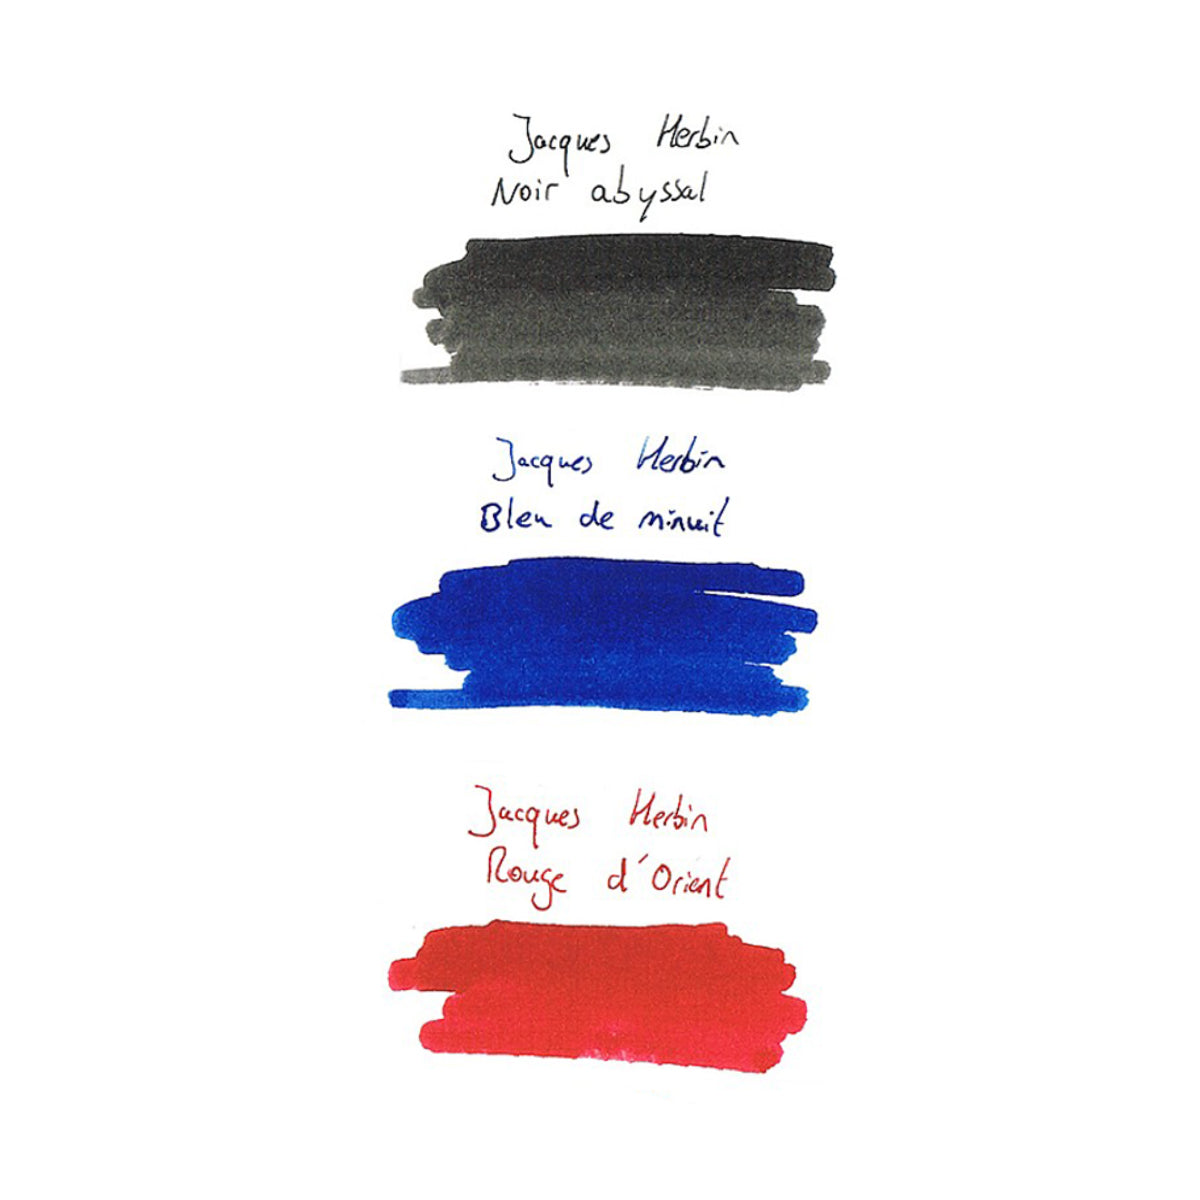 Jacques Herbin
Noir abyssal
Jacques Herbin
Bleu de minuit
Jacques Herbin
Rouge d'Orient